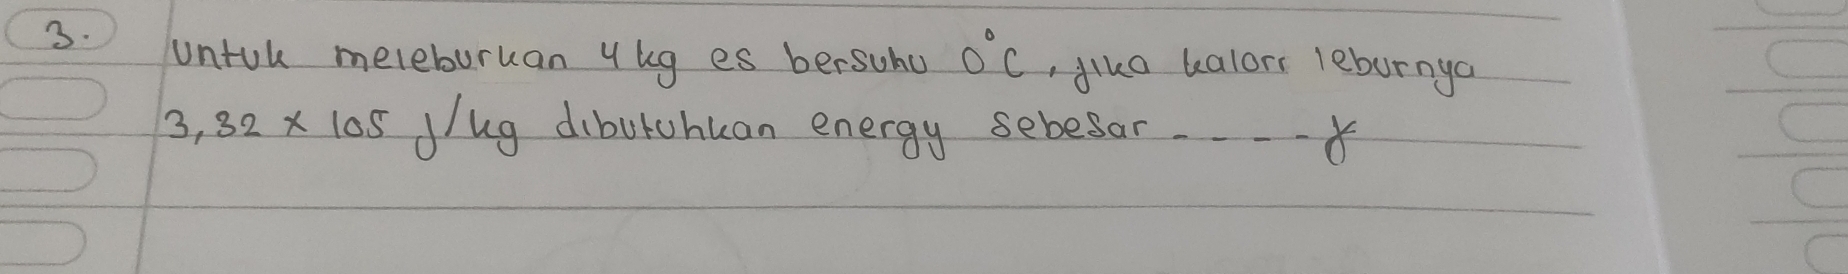 3. Untuk meleburkan 4 kg es bersuhu 0°C, jika kalori leburnya
3,32 x 105 J/kg dibutuhkan energy sebesar - - - - J